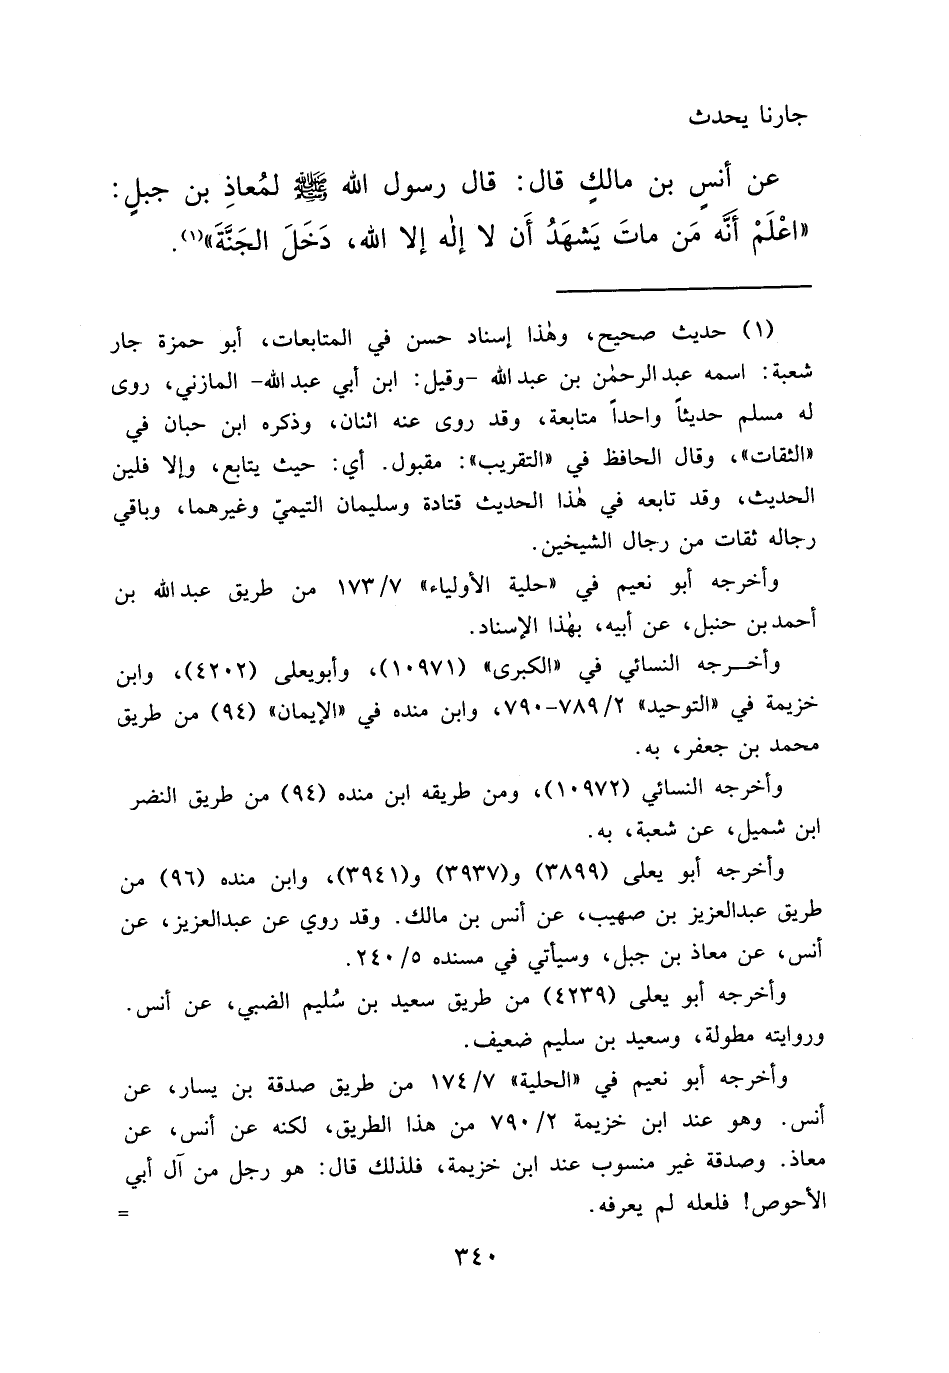 جارنا يحدث
عن أنسٍ بن مالكٍ قال: قال رسول الله ﷺ لمُعاذِ بن جبلٍ:
«اعْلَمْ أَنَّه مَن ماتَ يَشهَدُ أَن لا إلٰه إلا الله، دَخَلَ الجَنَّةَ»(١).
(١) حديث صحيح، وهٰذا إسناد حسن في المتابعات، أبو حمزة جار
شعبة: اسمه عبد الرحمٰن بن عبد الله -وقيل: ابن أبي عبد الله- المازني، روى
له مسلم حديثاً واحداً متابعة، وقد روى عنه اثنان، وذكره ابن حبان في
«الثقات»، وقال الحافظ في «التقريب»: مقبول. أي: حيث يتابع، وإلا فلين
الحديث، وقد تابعه في هٰذا الحديث قتادة وسليمان التيميّ وغيرهما، وباقي
رجاله ثقات من رجال الشيخين.
وأخرجه أبو نعيم في «حلية الأولياء» ١٧٣/٧ من طريق عبد الله بن
أحمد بن حنبل، عن أبيه، بهٰذا الإسناد.
وأخـرجه النسائي في «الكبرى» (١٠٩٧١)، وأبويعلى (٤٢٠٢)، وابن
خزيمة في «التوحيد» ٧٨٩/٢-٧٩٠، وابن منده في «الإيمان» (٩٤) من طريق
محمد بن جعفر، به.
وأخرجه النسائي (١٠٩٧٢)، ومن طريقه ابن منده (٩٤) من طريق النضر
ابن شميل، عن شعبة، به.
وأخرجه أبو يعلى (٣٨٩٩) و(٣٩٣٧) و(٣٩٤١)، وابن منده (٩٦) من
طريق عبدالعزيز بن صهيب، عن أنس بن مالك. وقد روي عن عبدالعزيز، عن
أنس، عن معاذ بن جبل، وسيأتي في مسنده ٢٤٠/٥.
وأخرجه أبو يعلى (٤٢٣٩) من طريق سعيد بن سُليم الضبي، عن أنس.
وروايته مطولة، وسعيد بن سليم ضعيف.
وأخرجه أبو نعيم في «الحلية» ١٧٤/٧ من طريق صدقة بن يسار، عن
أنس. وهو عند ابن خزيمة ٧٩٠/٢ من هذا الطريق، لكنه عن أنس، عن
معاذ. وصدقة غير منسوب عند ابن خزيمة، فلذلك قال: هو رجل من آل أبي
الأحوص! فلعله لم يعرفه. =
٣٤٠